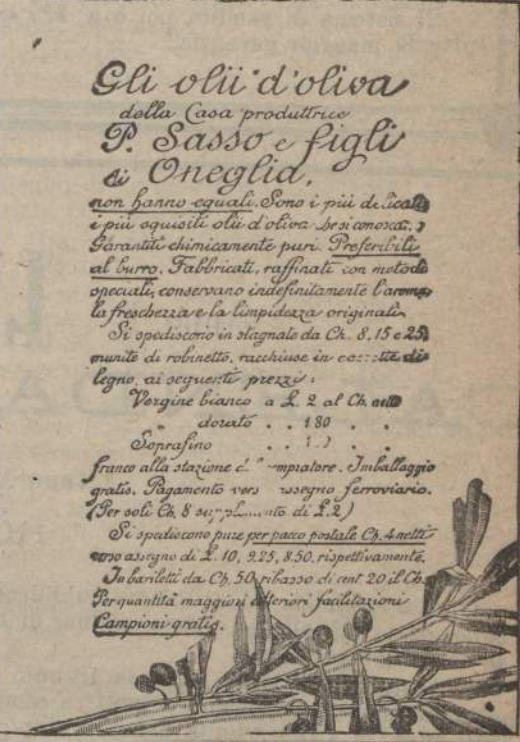 Gli olii d'oliva
della Casa produttrice
P. Sasso e figli
di Oneglia,
non hanno eguali. Sono i più delicati
i più squisiti olii d'oliva che si conosca.
Garantiti chimicamente puri. Preferibili
al burro. Fabbricati, raffinati con metodi
speciali, conservano indefinitamente l'aroma,
la freschezza e la limpidezza originali.
Si spediscono in stagnate da Ch. 8, 15 e 25
munite di robinetto, racchiuse in cassette di
legno, ai seguenti prezzi:
Vergine bianco a L. 2 al Ch. netto
" dorato . . 1.80 . .
Soprafino . . . .
franco alla stazione Imballaggio
gratis. Pagamento verso assegno ferroviario.
(Per soli Ch. 8 supplemento di L. 2)
Si spediscono pure per pacco postale Ch. 4 netti
verso assegno di L. 10, 9.25, 8.50, rispettivamente.
In bariletti da Ch. 50, ribasso di cent 20 il Ch.
Per quantità maggiori ulteriori facilitazioni
Campioni gratis.